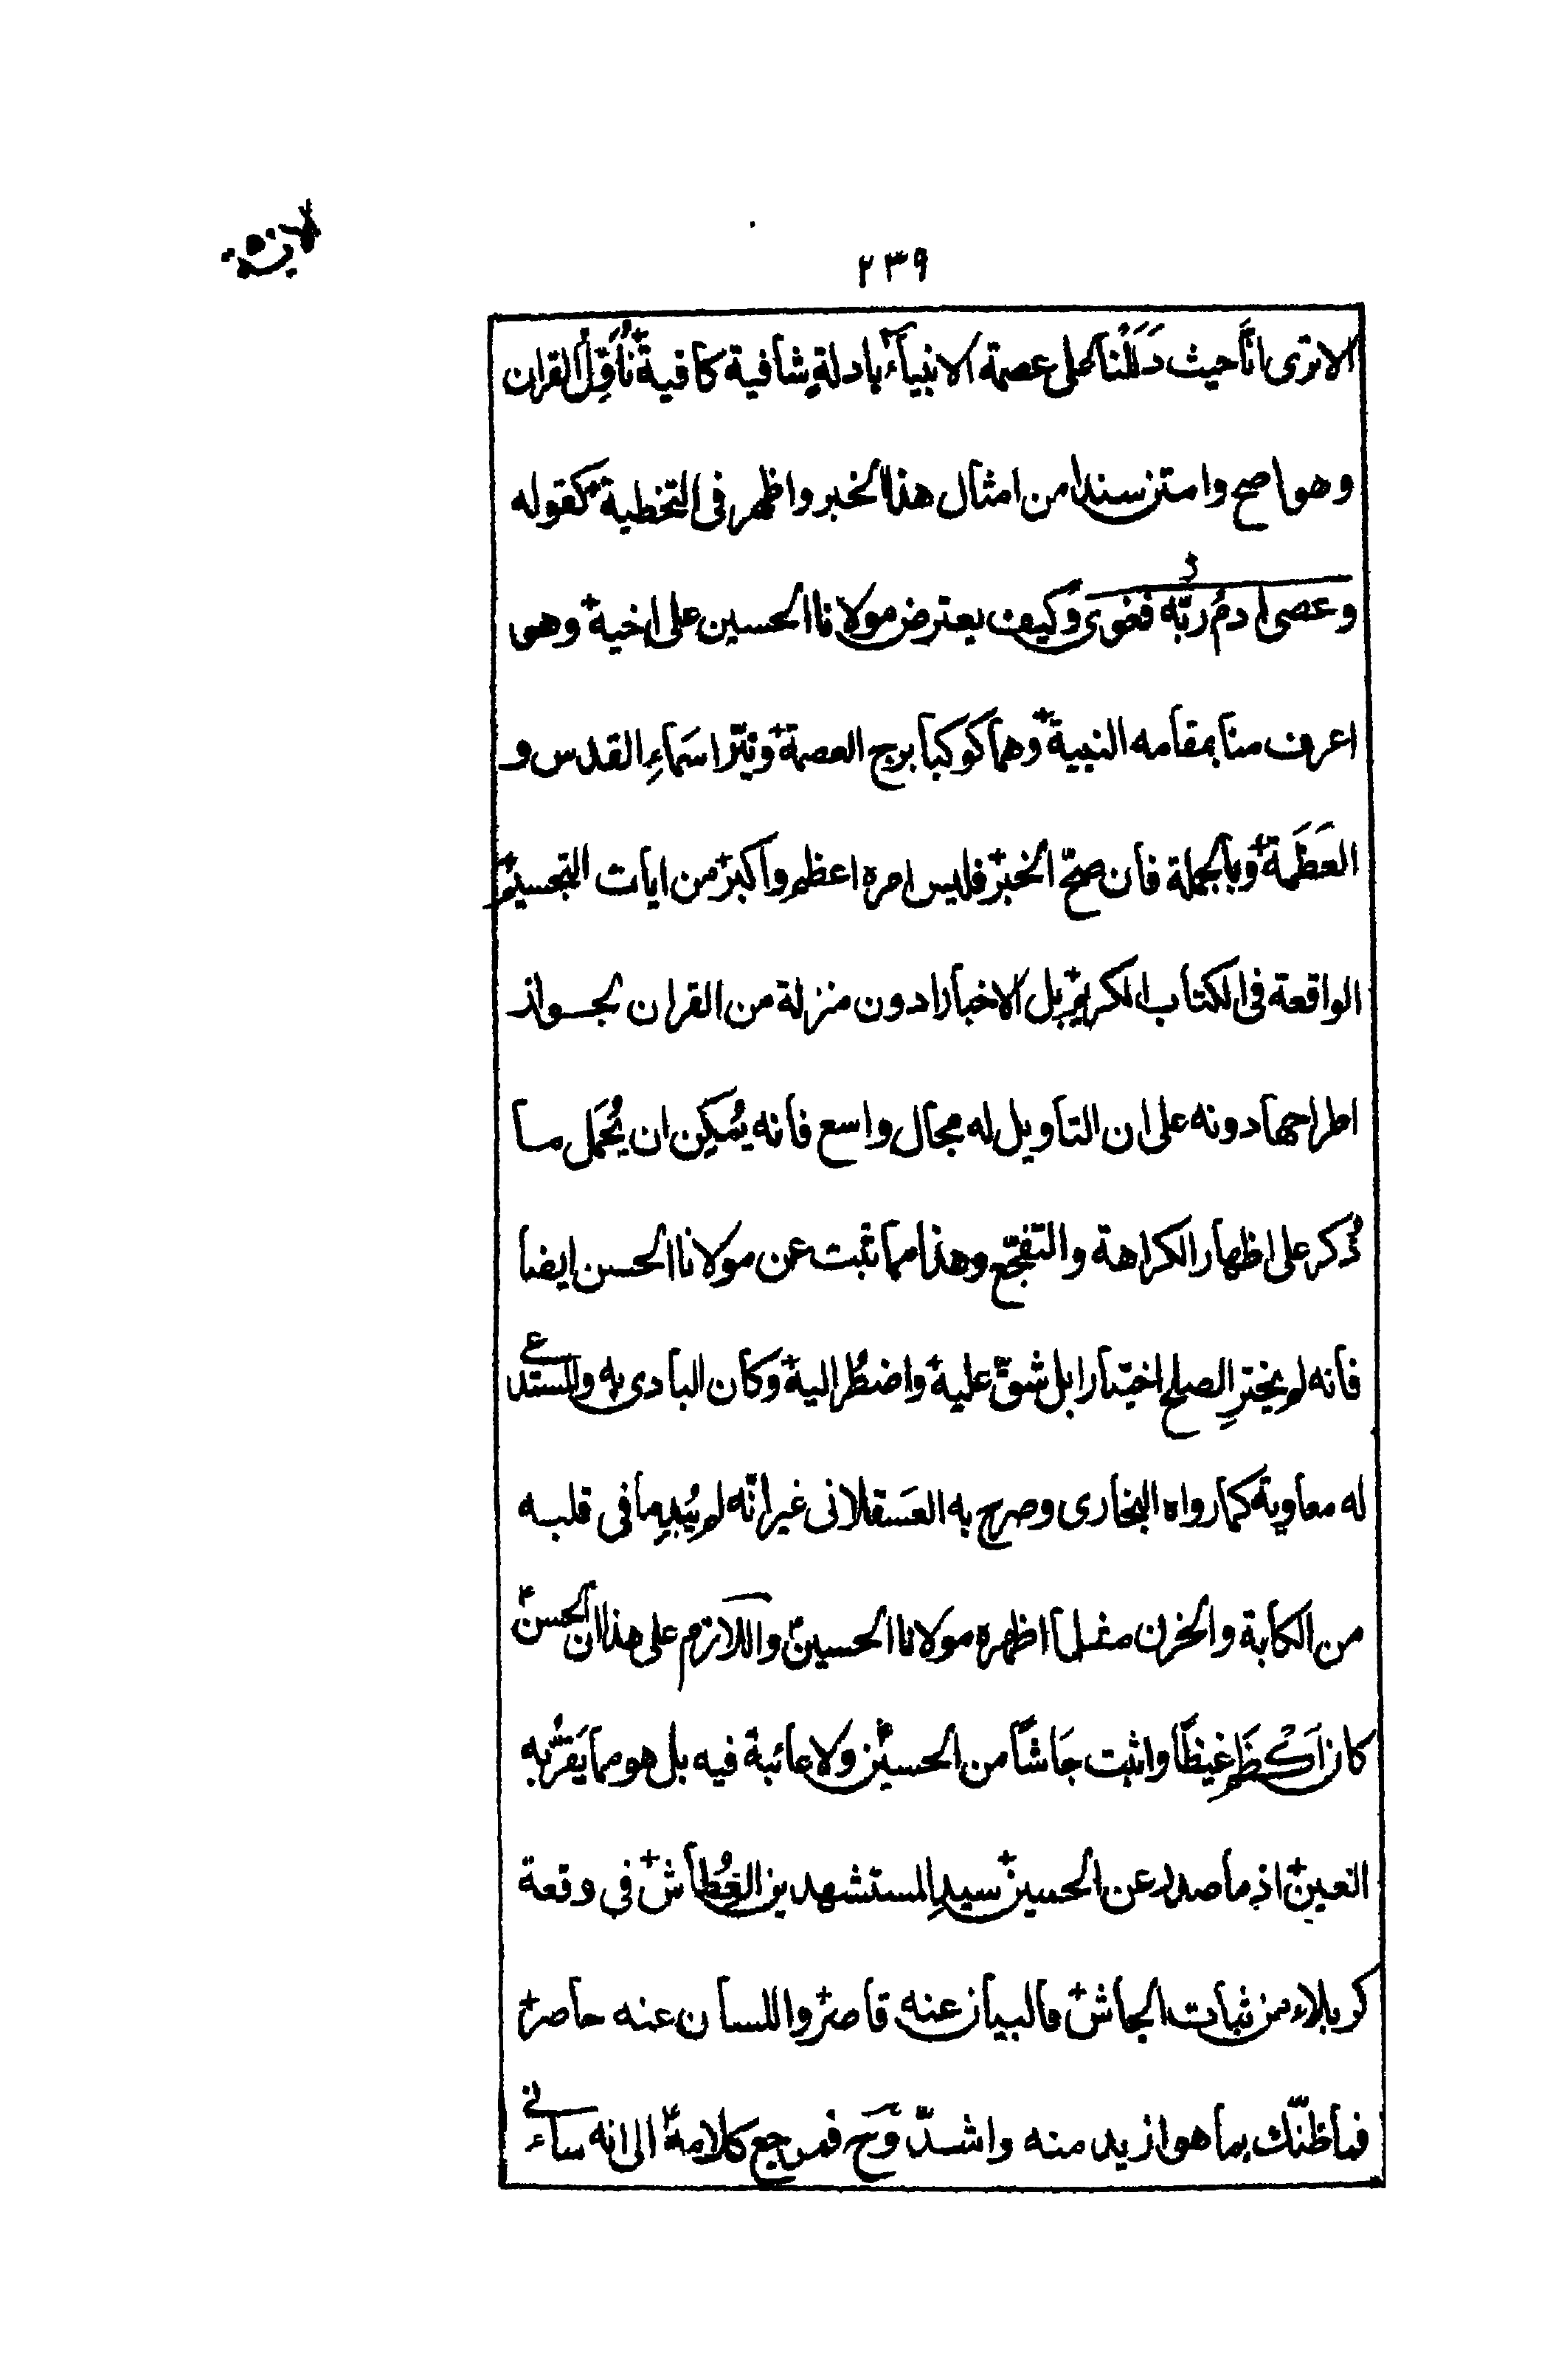 ٢٣٩
الا ترى انّا حيث دَلَّلْنا على عصمة الانبيآء بادلةٍ شافية كافية نُأَوِّلُ القران
وهو اصح وامتن سندا من امثال هذا الخبر واظهر فى التخطية كقوله
وعصى ادمُ ربّه فغوى وكيف يعترض مولانا الحسين على اخيه وهو
اعرف منا بمقامه النبيه وهما كوكبا برج العصمة ونيّرا سَماءِ القدس و
العَظَمة وبالجملة فان صحّ الخبر فليس امره اعظم واكبر من ايات التجسيم
الواقعة فى الكتاب الكريم بل الاخبار ادون منزلة من القران لجواز
اطراحها دونه على ان التاويل له مجال واسع فانه يُمكِن ان يُحمَل ما
ذُكر على اظهار الكراهة والتفجّع وهذا مما ثبت عن مولانا الحسن ايضا
فانه لم يخترِ الصلح اختيارا بل شقّ عليه واضطُر اليه وكان البادى به والمستدعى
له معاوية كما رواه البخارى وصرح به العسَقلانى غير انّه لم يُبدِ ما فى قلبه
من الكأبة والحزن مثل ما اظهره مولانا الحسين واللازم على هذا ان الحسن
كان اَكْظَم غيظًا واثبت جَاشًا من الحسين ولا عائبة فيه بل هو مما يَقَرُّ به
العين اذ ما صدر عن الحسين سيدِ المستشهدين العُطاش فى وقعة
كربلاء من ثبات الجاش فالبيان عنه قاصر واللسان عنه حاصر
فما ظنّك بما هو ازيد منه واشدّ وَح فمرجع كلامه الى انه ساءنى